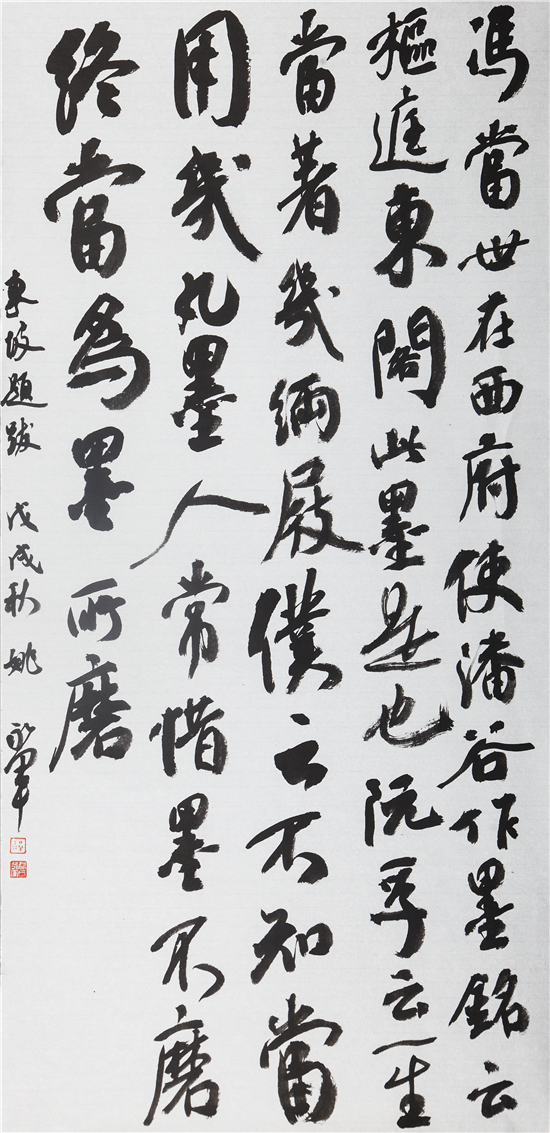 馮當世在西府使潘谷作墨銘云
樞廷東閣此墨是也阮孚云一生
當著幾緉屐僕云不知當
用幾丸墨人常惜墨不磨
終當為墨所磨
東坡題跋 戊戌秋 姚